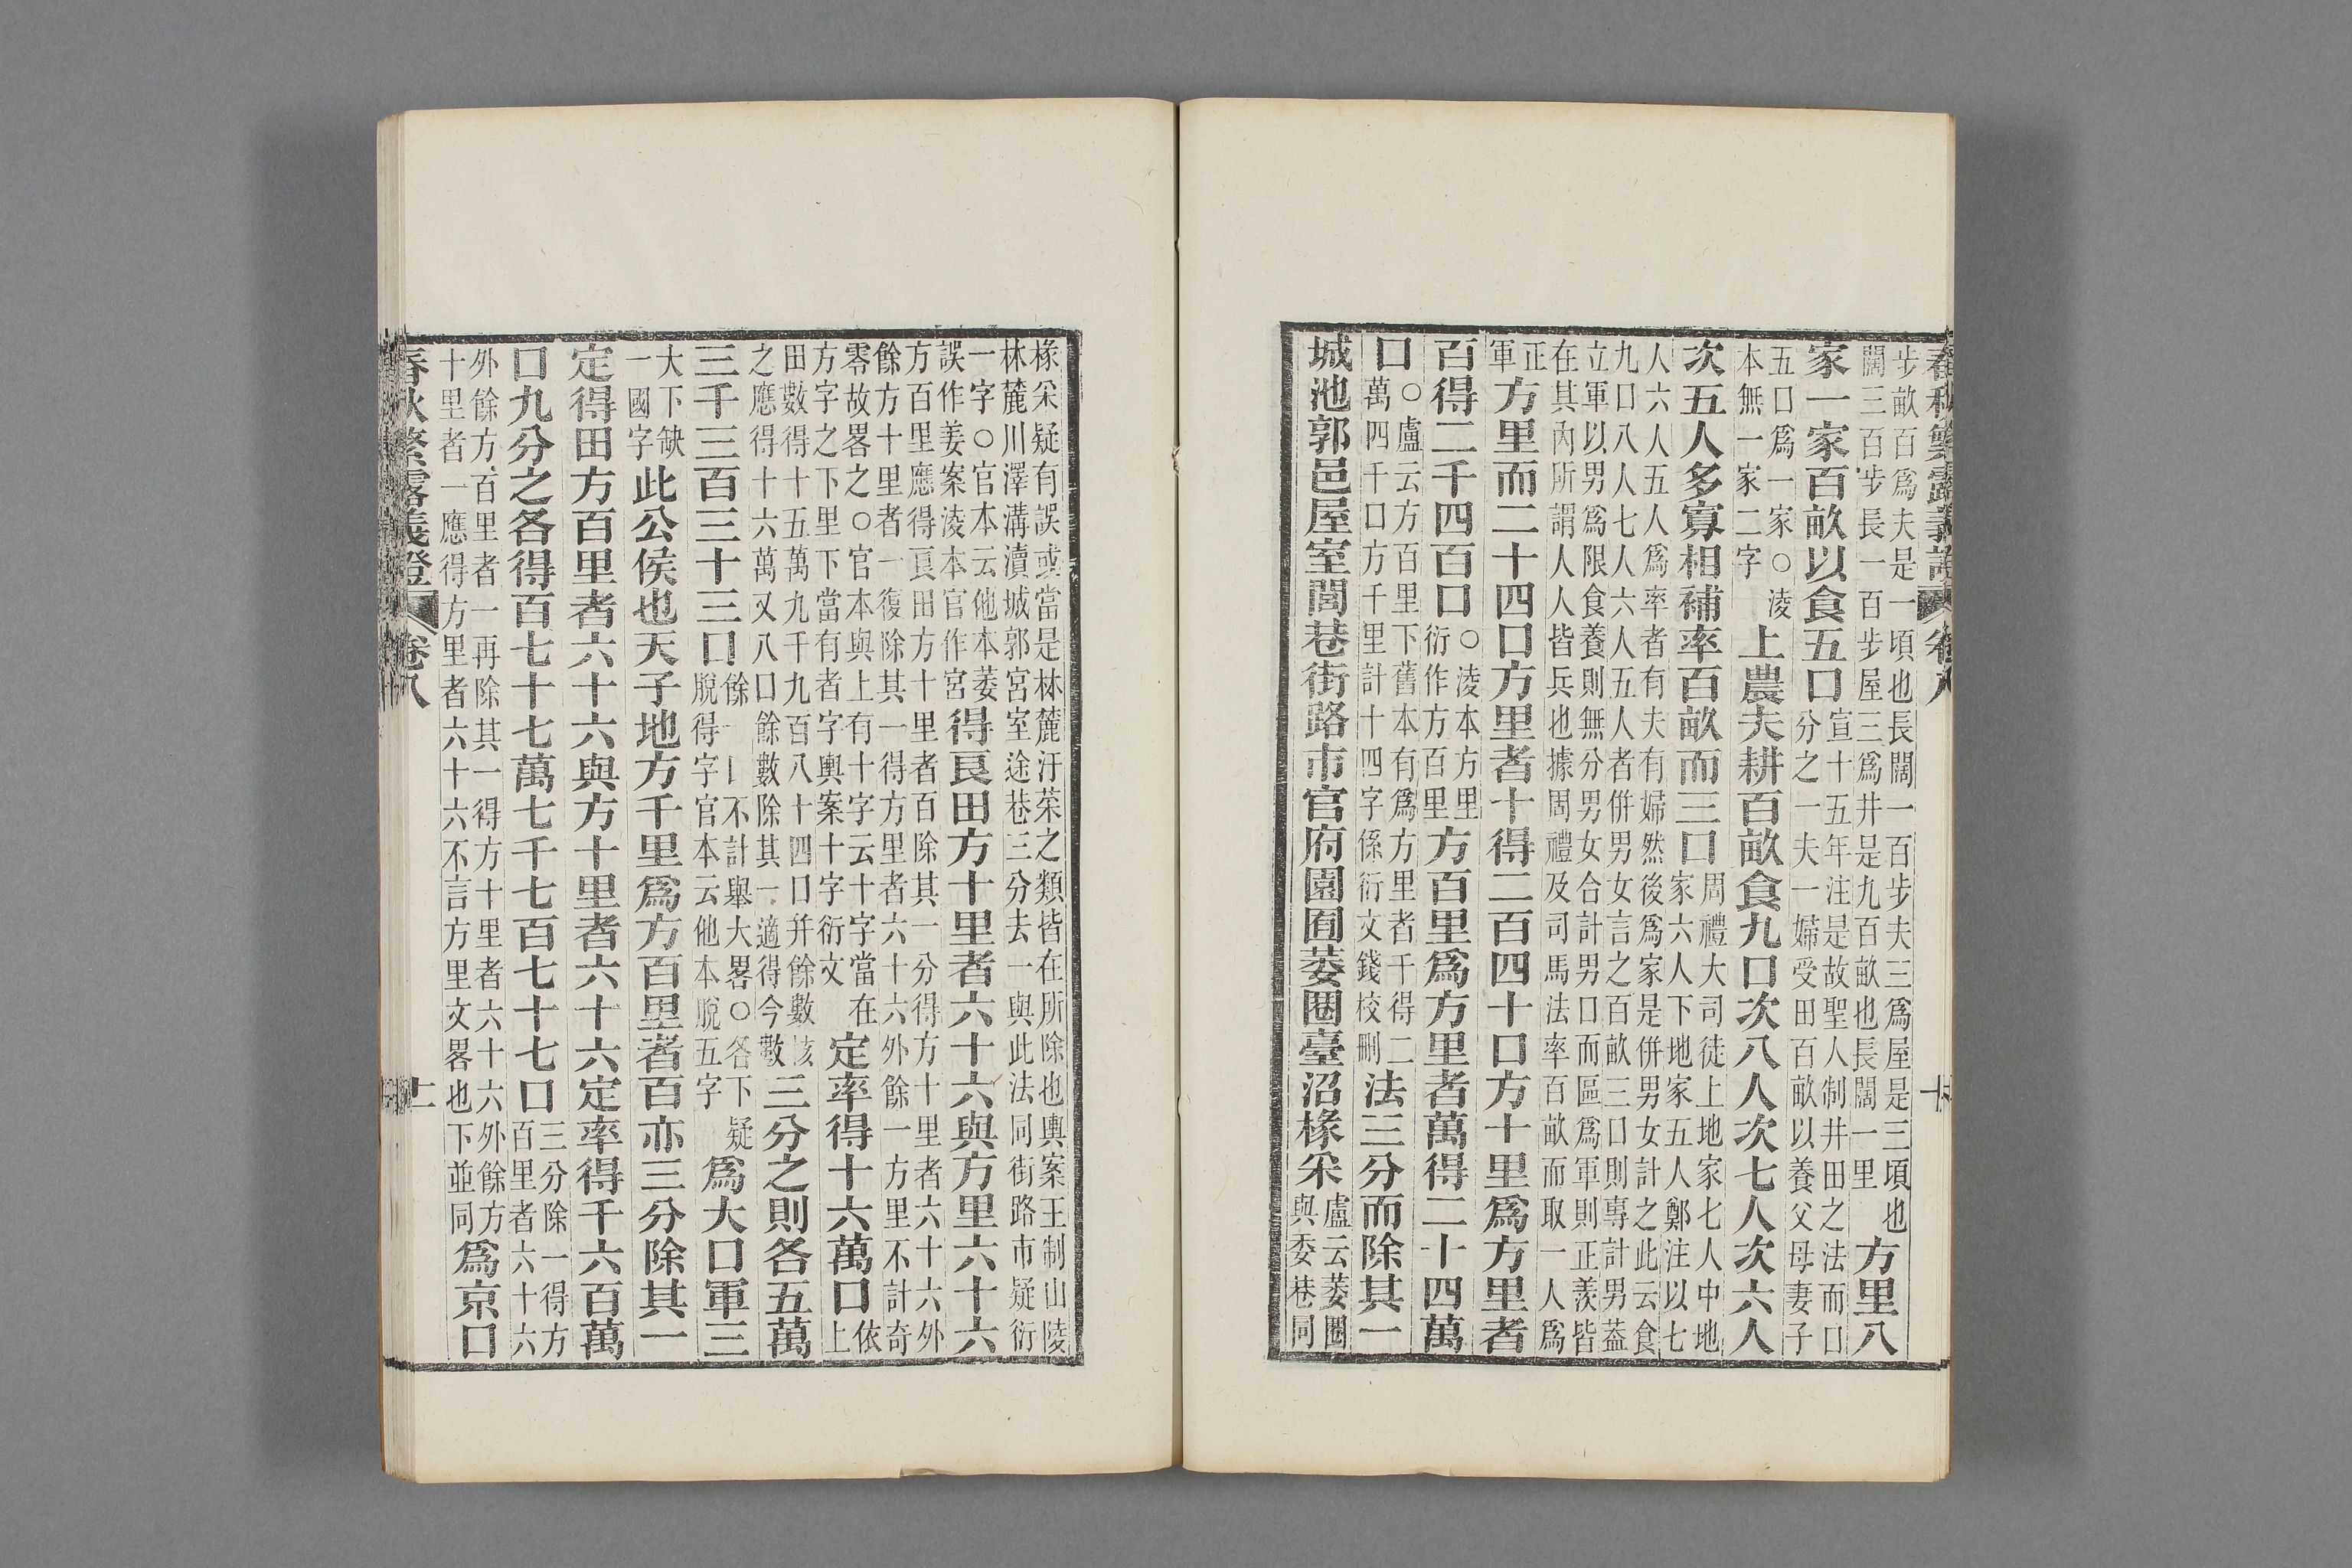 春秋繁露義證 卷八 十
步畝百爲夫是一頃也長闊一百步夫三爲屋是三頃也
闊三百步長一百步屋三爲井是九百畝也長闊一里
方里八
家一家百畝以食五口
宣十五年注是故聖人制井田之法而口
分之一夫一婦受田百畝以養父母妻子
五口爲一家○淩
本無一家二字
上農夫耕百畝食九口次八人次七人次六人
次五人多寡相補率百畝而三口
周禮大司徒上地家七人中地
家六人下地家五人鄭注以七
人六人五人爲率者有夫有婦然後爲家是併男女計之此云食
九口八人七人六人五人者併男女言之百畝三口則專計男蓋
立軍以男爲限食養則無分男女合計男口而區爲軍則正羨皆
在其內所謂人人皆兵也據周禮及司馬法率百畝而取一人爲
正
軍
方里而二十四口方里者十得二百四十口方十里爲方里者
百得二千四百口
○淩本方里
衍作方百里
方百里爲方里者萬得二十四萬
口
○盧云方百里下舊本有爲方里者千得二
萬四千口方千里計十四字係衍文錢校刪
法三分而除其一
城池郭邑屋室閭巷街路市官府園囿萎圈臺沼椽采
盧云萎圈
與委巷同
椽采疑有誤或當是林麓汙萊之類皆在所除也輿案王制山陵
林麓川澤溝瀆城郭宮室途巷三分去一與此法同街路市疑衍
一字○官本云他本萎
誤作姜案淩本官作宮
得良田方十里者六十六與方里六十六
方百里應得良田方十里者百除其一分得方十里者六十六外
餘方十里者一復除其一得方里者六十六外餘一方里不計奇
零故畧之○官本與上有十字云十字當在
方字之下里下當有者字輿案十字衍文
定率得十六萬口
依
上
田數得十五萬九千九百八十四口并餘數核
之應得十六萬又八口餘數除其一適得今數
三分之則各五萬
三千三百三十三口
餘一不計舉大畧○各下疑
脫得字官本云他本脫五字
爲大口軍三
大下缺
一國字
此公侯也天子地方千里爲方百里者百亦三分除其一
定得田方百里者六十六與方十里者六十六定率得千六百萬
口九分之各得百七十七萬七千七百七十七口
三分除一得方
百里者六十六
外餘方百里者一再除其一得方十里者六十六外餘方
十里者一應得方里者六十六不言方里文畧也下並同
爲京口
春秋繁露義證 卷八 十一